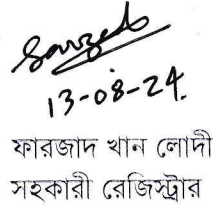 13-08-24
ফারজাদ খান লোদী
সহকারী রেজিস্ট্রার